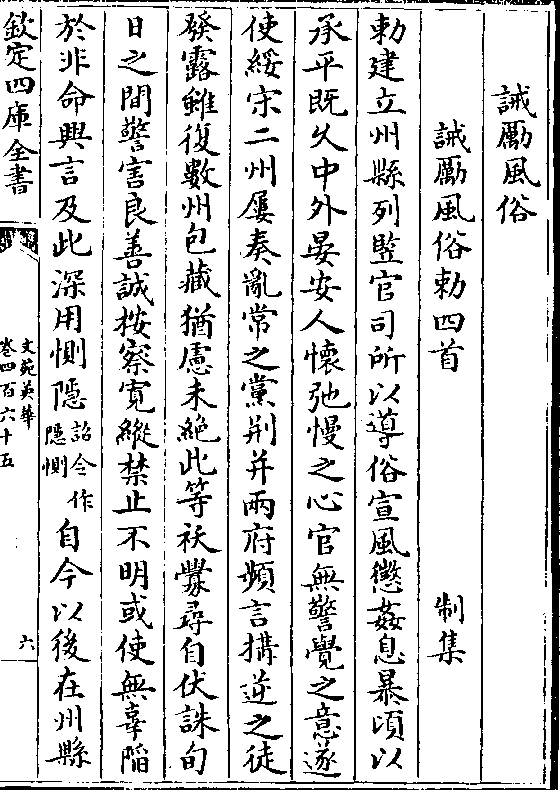 誡勵風俗
誡勵風俗勅四首 制集
勅建立州縣列監官司所以導俗宣風懲姦息暴頃以
承平既久中外晏安人懷弛慢之心官無警覺之意遂
使綏宋二州屢奏亂常之黨荆并兩府頻言搆逆之徒
發露雖復數州包藏猶慮未絶此等祅釁尋自伏誅旬
日之間警害良善誠按察寛縱禁止不明或使無辜陷
於非命興言及此深用惻隱詔令作隱惻自今以後在州縣
欽定四庫全書
文苑英華
卷四百六十五
六